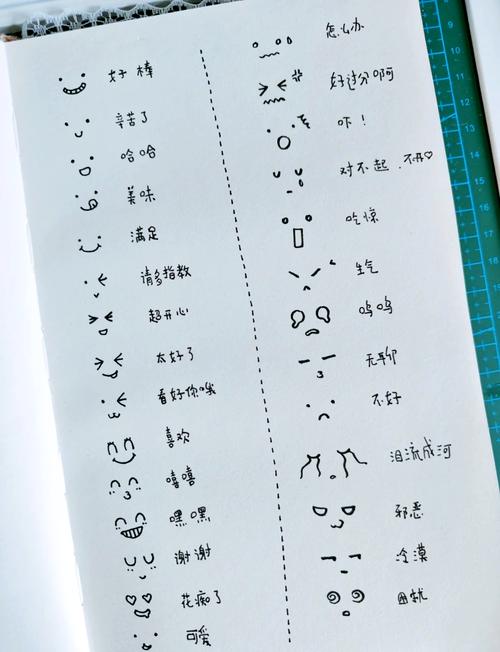 好棒
辛苦了
哈哈
美味
满足
请多指教
超开心
太好了
看好你哦
喜欢
嘻嘻
嘿嘿
谢谢
花痴了
可爱
怎么办
好过分啊
吓！
对不起.不再♡
吃惊
生气
呜呜
无聊
不好
泪流成河
邪恶
冷漠
困扰
9
10
11
12
13
14
15
16
17